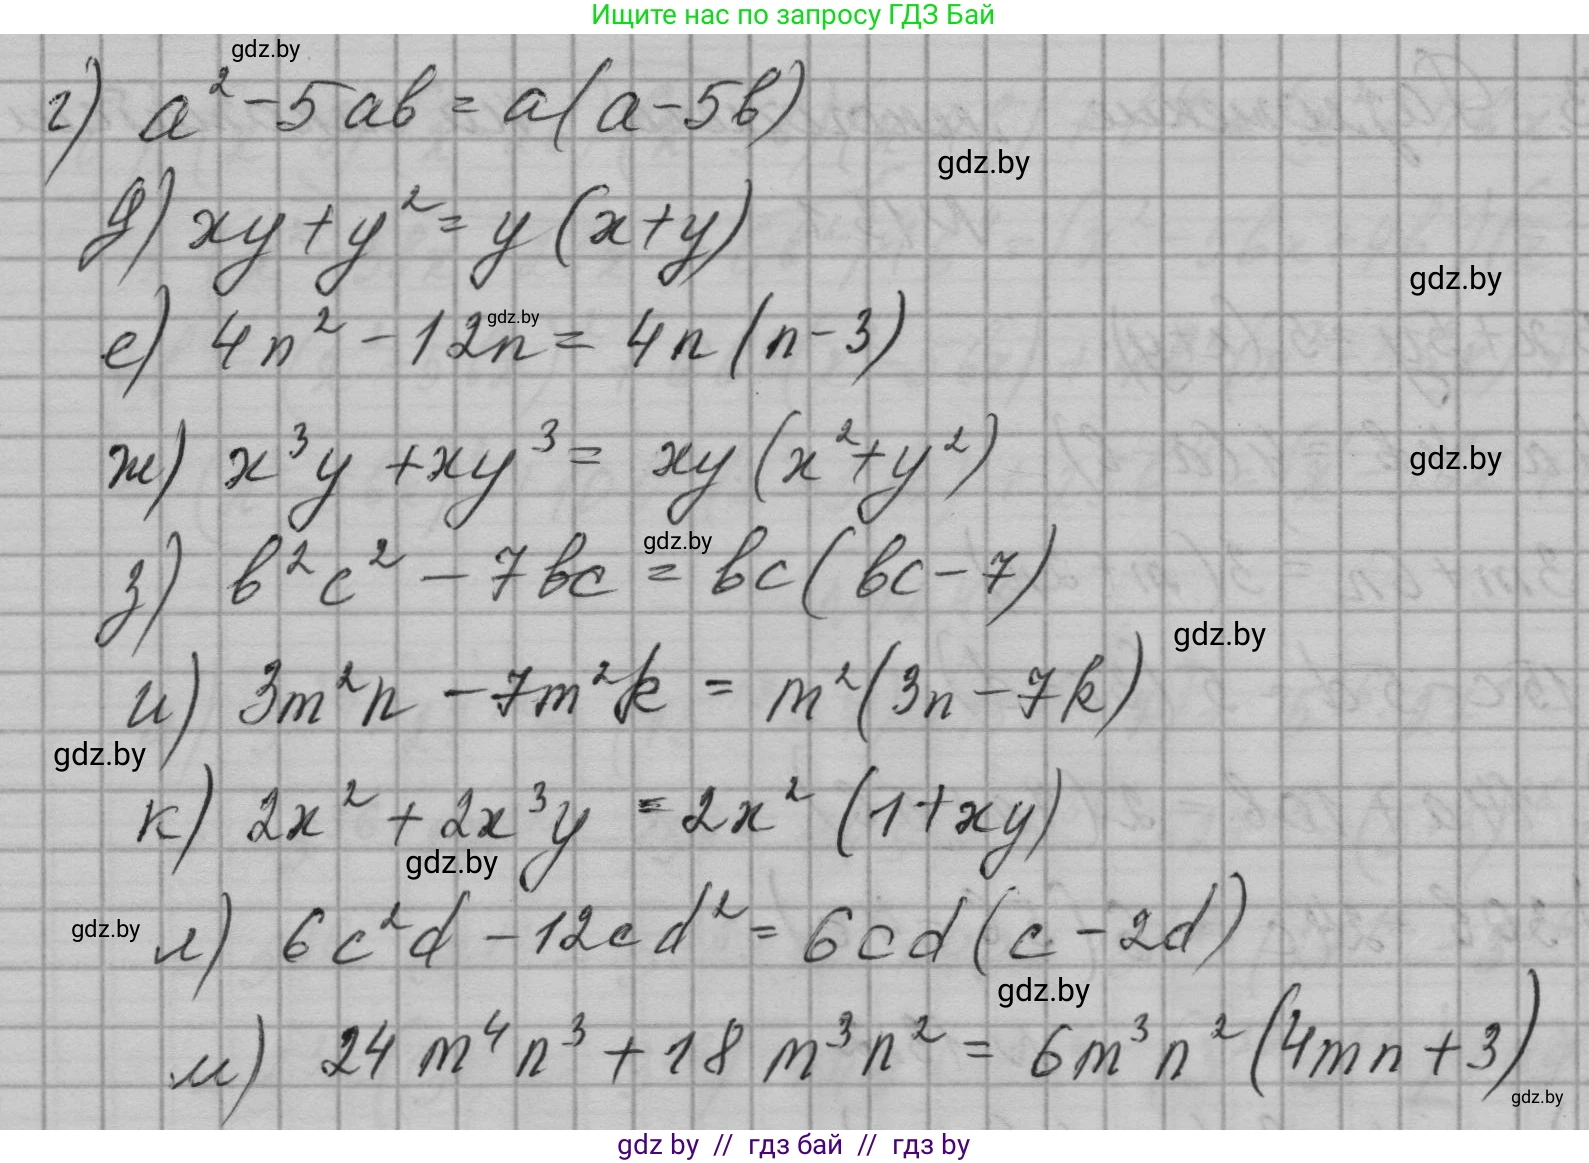 Ищите нас по запросу ГДЗ Бай
gdz.by
г) a² - 5ab = a(a - 5b)
gdz.by
д) xy + y² = y (x + y)
gdz.by
е) 4n² - 12n = 4n (n - 3)
gdz.by
ж) x³y + xy³ = xy (x² + y²)
gdz.by
gdz.by
з) b²c² - 7bc = bc (bc - 7)
gdz.by
и) 3m²n - 7m²k = m² (3n - 7k)
gdz.by
к) 2x² + 2x³y = 2x² (1 + xy)
gdz.by
gdz.by
л) 6c²d - 12cd² = 6cd (c - 2d)
gdz.by
м) 24 m⁴n³ + 18 m³n² = 6m³n² (4mn + 3)
gdz.by
gdz by // гдз бай // гдз by